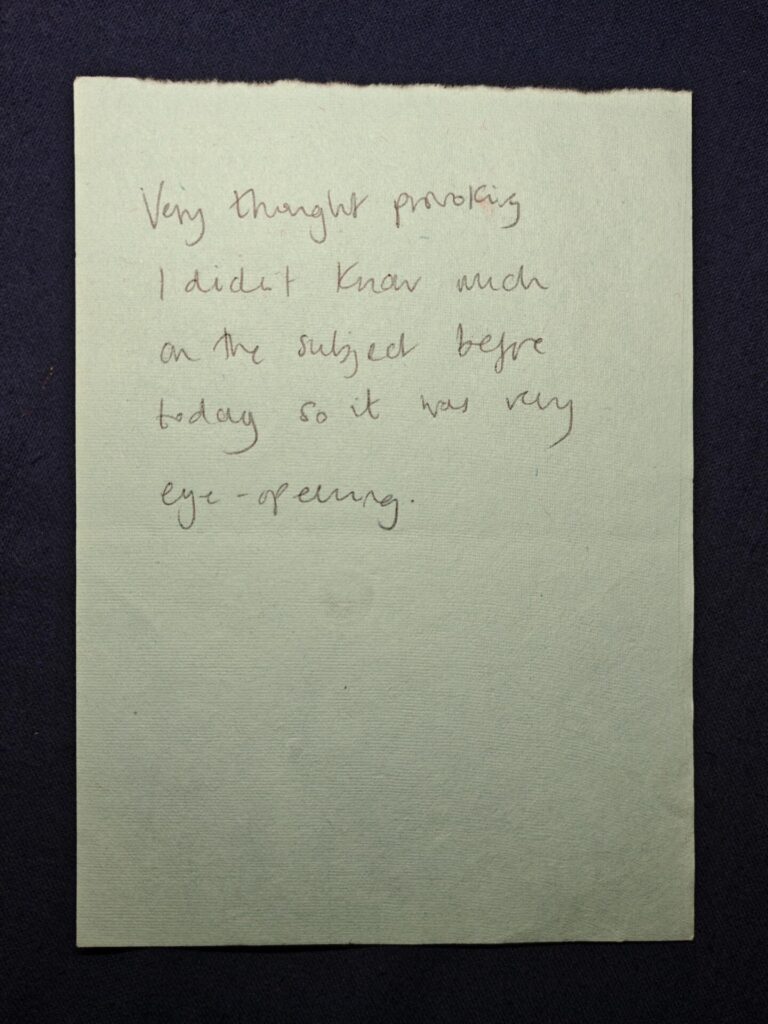 Very thought provoking
I didn't know much
on the subject before
today so it was very
eye-opening.